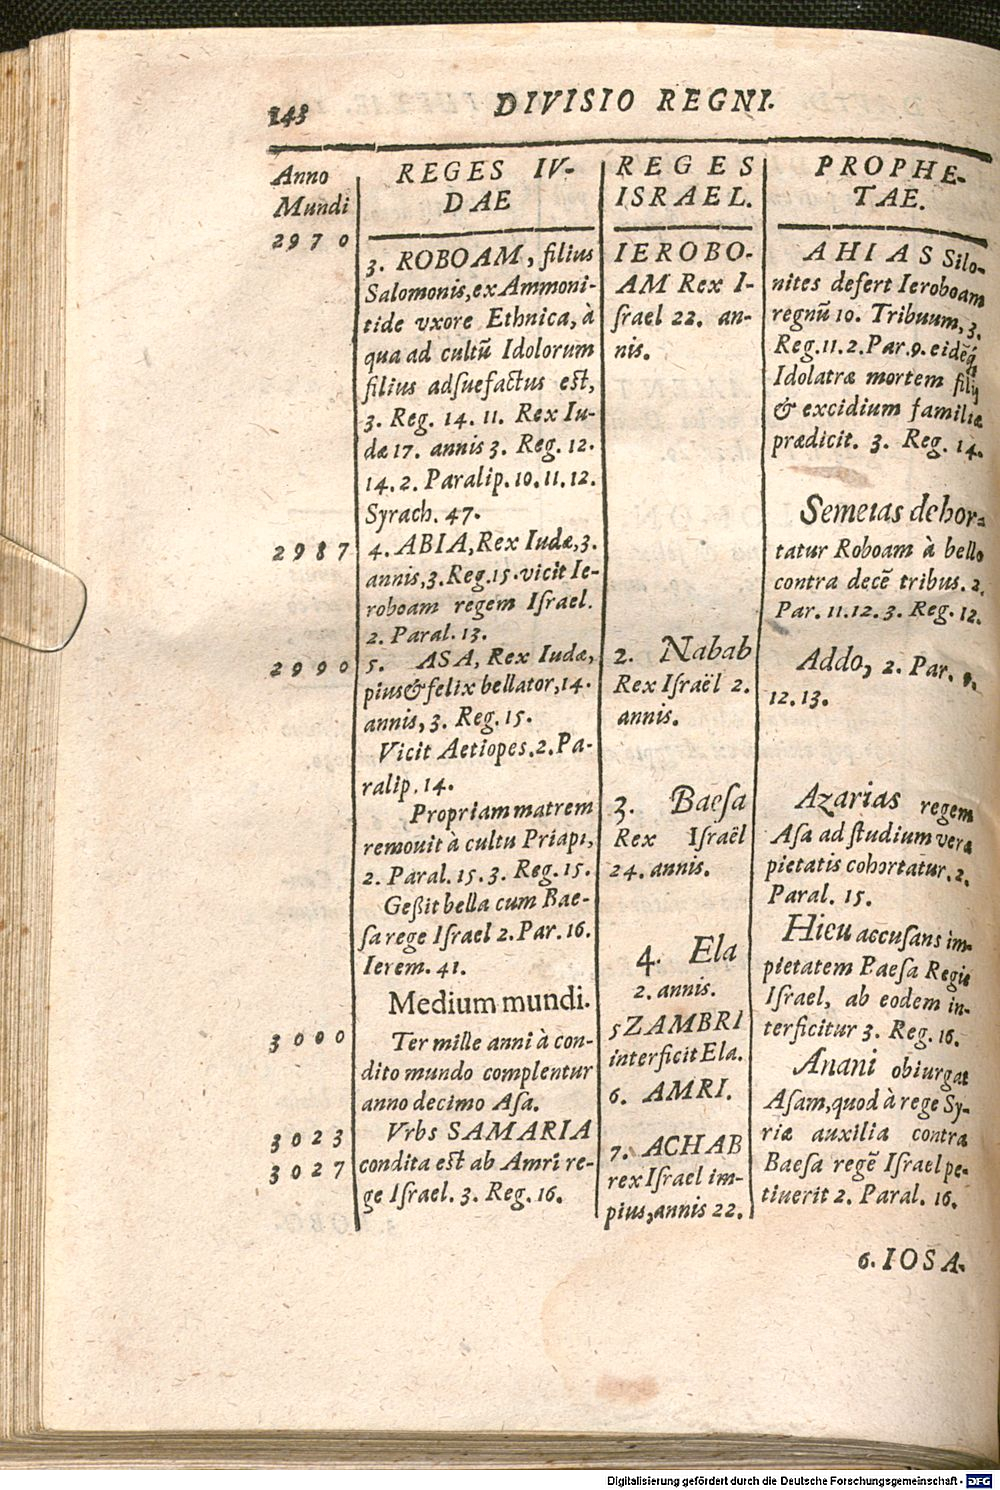 143
DIVISIO REGNI.
Anno
Mundi
2970
2987
2990
3000
3023
3027
REGES IV-
DAE
3. ROBOAM, filius
Salomonis, ex Ammoni-
tide vxore Ethnica, à
qua ad cultũ Idolorum
filius adsuefactus est,
3. Reg. 14. 11. Rex Iu-
dæ 17. annis 3. Reg. 12.
14. 2. Paralip. 10. 11. 12.
Syrach. 47.
4. ABIA, Rex Iudæ, 3.
annis, 3. Reg. 15. vicit Ie-
roboam regem Israel.
2. Paral. 13.
5. ASA, Rex Iudæ,
pius & felix bellator, 14.
annis, 3. Reg. 15.
Vicit Aetiopes. 2. Pa-
ralip. 14.
Propriam matrem
remouit à cultu Priapi,
2. Paral. 15. 3. Reg. 15.
Geßit bella cum Bae-
sa rege Israel 2. Par. 16.
Ierem. 41.
Medium mundi.
Ter mille anni à con-
dito mundo complentur
anno decimo Asa.
Vrbs SAMARIA
condita est ab Amri re-
ge Israel. 3. Reg. 16.
REGES
ISRAEL.
IEROBO-
AM Rex I-
srael 22. an-
nis.
2. Nabab
Rex Israël 2.
annis.
3. Baesa
Rex Israël
24. annis.
4. Ela
2. annis.
5 ZAMBRI
interficit Ela.
6. AMRI.
7. ACHAB
rex Israel im-
pius, annis 22.
PROPHE-
TAE.
AHIAS Silo-
nites defert Ieroboam
regnũ 10. Tribuum, 3.
Reg. 11. 2. Par. 9. eidẽq́
Idolatræ mortem filij
& excidium familiæ
prædicit. 3. Reg. 14.
Semeias dehor-
tatur Roboam à bello
contra decẽ tribus. 2.
Par. 11. 12. 3. Reg. 12.
Addo, 2. Par. 9.
12. 13.
Azarias regem
Asa ad studium veræ
pietatis cohortatur. 2.
Paral. 15.
Hieu accusans im-
pietatem Paesa Regis
Israel, ab eodem in-
terficitur 3. Reg. 16.
Anani obiurgat
Asam, quod à rege Sy-
riæ auxilia contra
Baesa regẽ Israel pe-
tiuerit 2. Paral. 16.
6. IOSA-
Digitalisierung gefördert durch die Deutsche Forschungsgemeinschaft - DFG